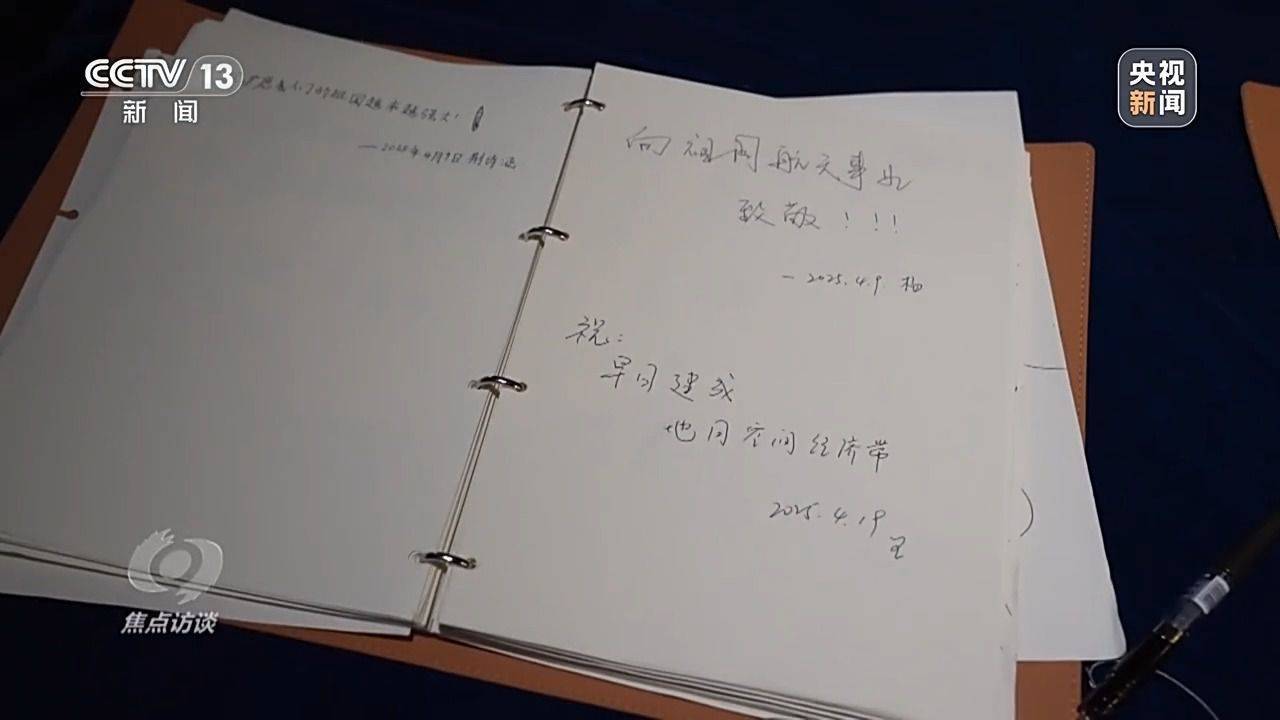 CCTV 13
新闻
央视
新闻
的祖国越来越强大!
—2025年4月9日
向祖国航天事业
致敬!!!
— 2025.4.9 柏
祝:
早日建成
地月空间经济带
2025.4.19
王
焦点访谈